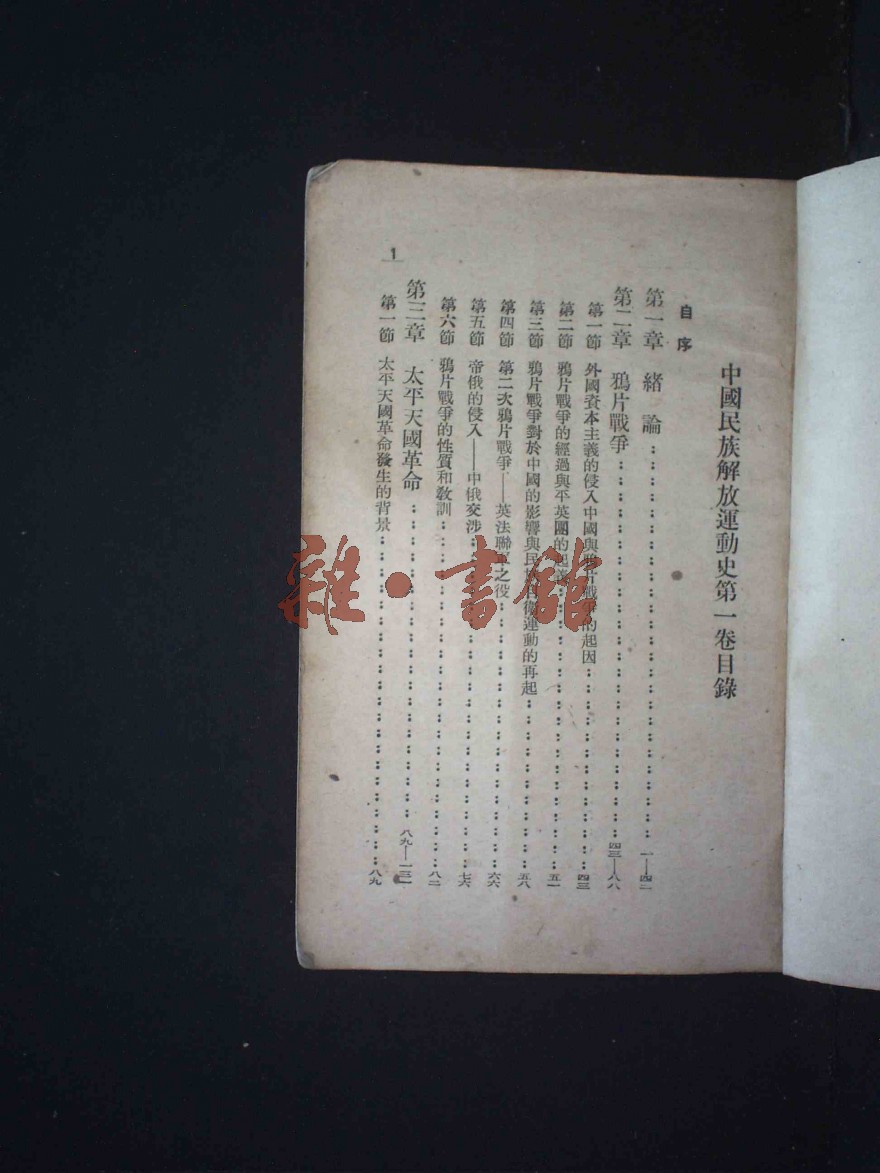 中國民族解放運動史第一卷目錄
自序
第一章 緒論……一—四二
第二章 鴉片戰爭……四三—八八
第一節 外國資本主義的侵入中國與鴉片戰爭的起因……四三
第二節 鴉片戰爭的經過與平英團的起義……五一
第三節 鴉片戰爭對於中國的影響與民族自衞運動的再起……五八
第四節 第二次鴉片戰爭——英法聯軍之役……六六
第五節 帝俄的侵入——中俄交涉……七六
第六節 鴉片戰爭的性質和敎訓……八二
第三章 太平天國革命……八九—一三一
第一節 太平天國革命發生的背景……八九
1
雜·書館